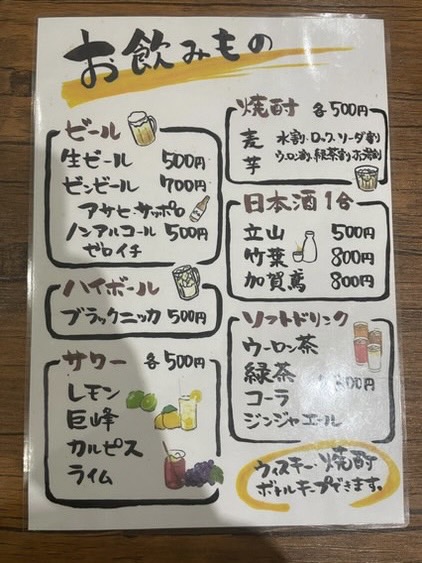 お飲みもの
ビール
生ビール 500円
ビンビール 700円
アサヒ・サッポロ
ノンアルコール 500円
ゼロイチ
ハイボール
ブラックニッカ 500円
サワー 各500円
レモン
巨峰
カルピス
ライム
焼酎 各500円
麦 水割り・ロック・ソーダ割り
芋 ウーロン割り・緑茶割り・お湯割り
日本酒 1合
立山 500円
竹葉 800円
加賀鳶 800円
ソフトドリンク
ウーロン茶
緑茶
00円
コーラ
ジンジャエール
ウィスキー・焼酎
ボトルキープできます。